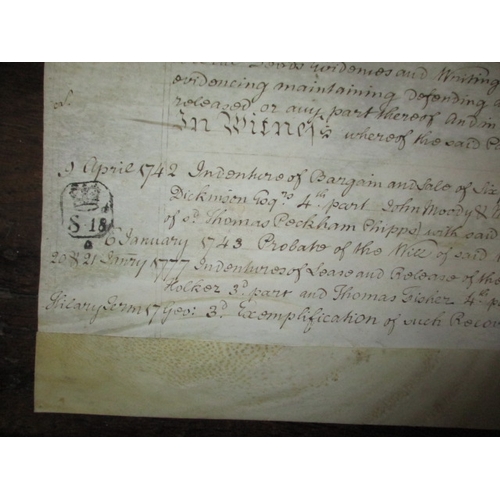 Deeds Evidences and Writing
evidencing maintaining defending
released or any part thereof And in
al.
In Witness whereof the said
9 April 1742 Indenture of Bargain and Sale of
Dickinson Esqr. 4th. part John Moody &
S 18
of sd. Thomas Peckham Phipps with said
6 January 1743 Probate of the Will of said
20 & 21 Janry 1777 Indentures of Lease and Release of the
Holker 3d. part and Thomas Fisher 4th. p
Hilary Term 17 Geo: 3d. Exemplification of such Recov